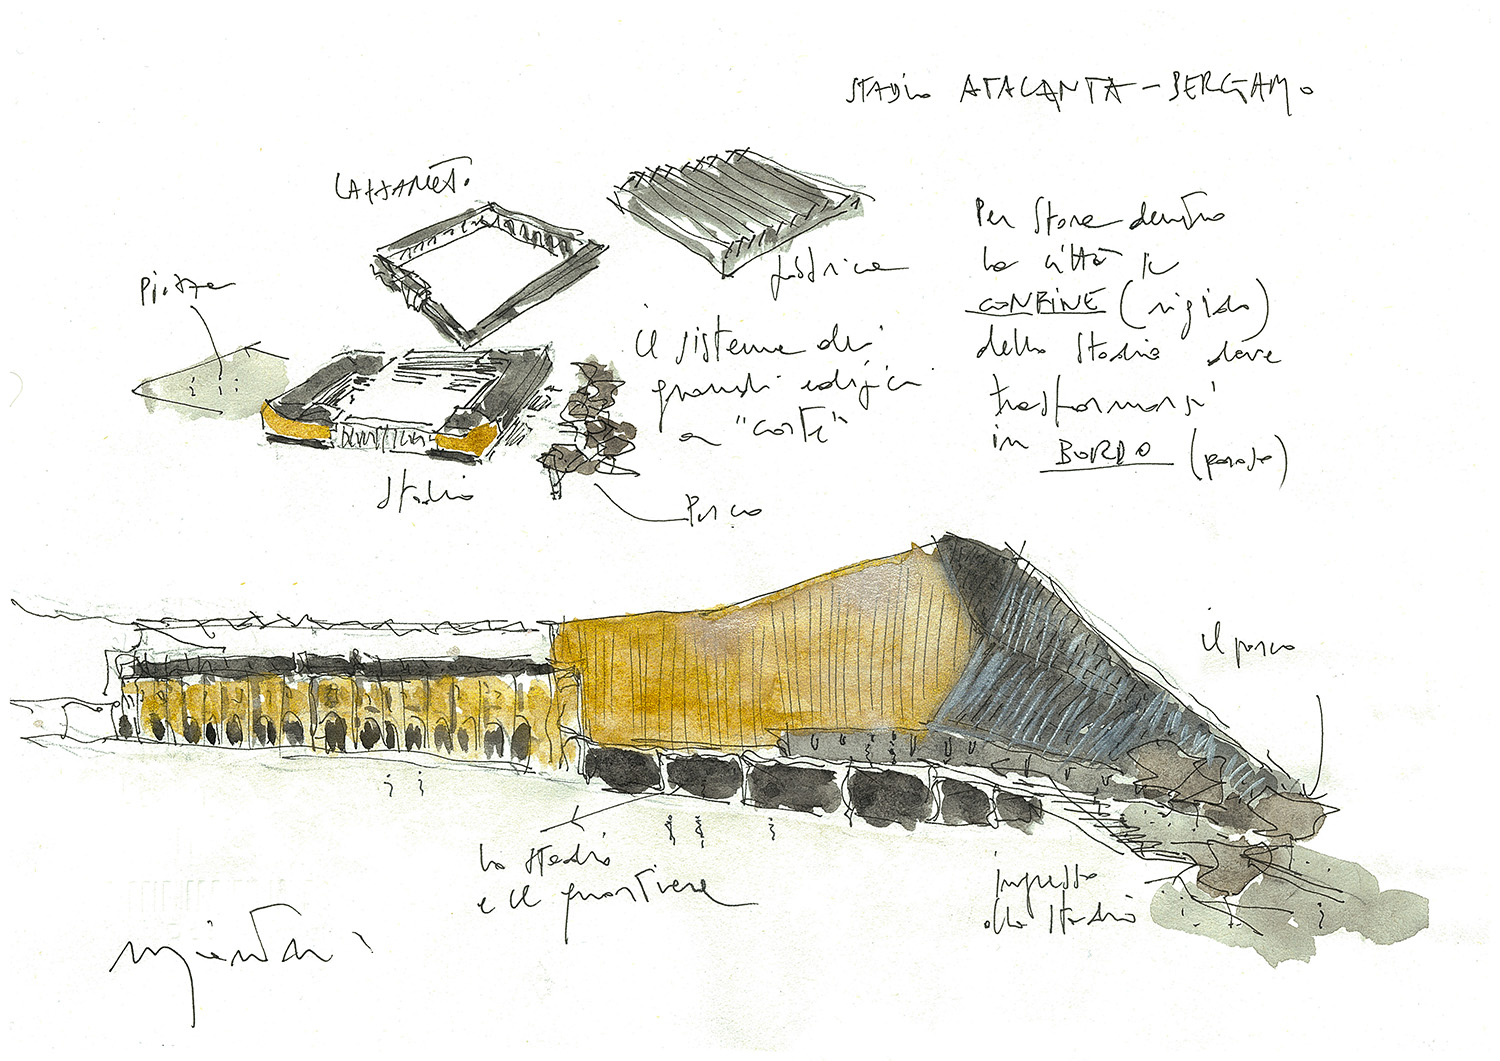 STADIO ATALANTA - BERGAMO
LAZZARETTO
Piazza
fabbrica
Per stare dentro
la città il
CONFINE (rigido)
dello stadio deve
trasformarsi
in BORDO
il sistema dei
grandi edifici
a "corte"
stadio
Parco
il parco
lo stadio
e il quartiere
ingresso
allo stadio